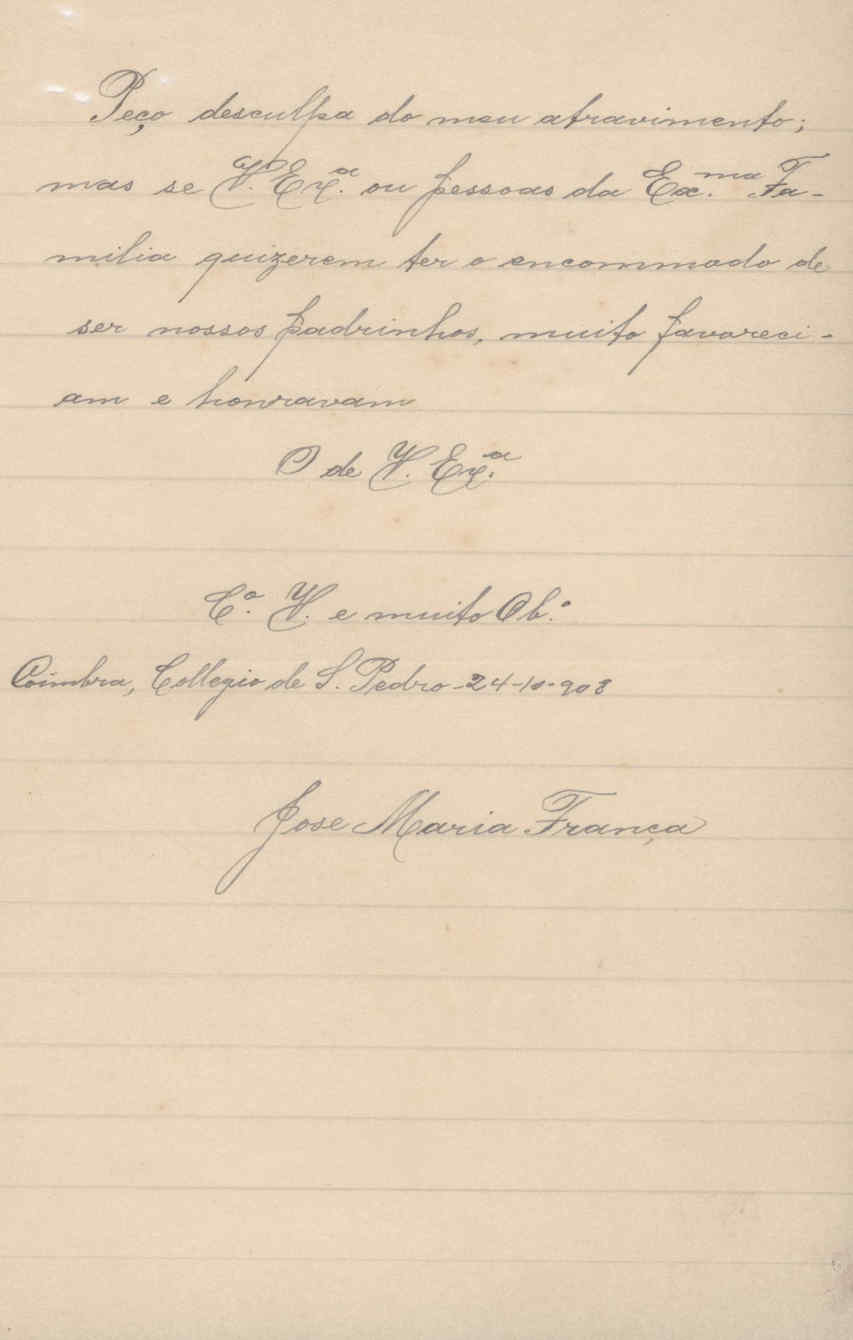 Peço desculpa do meu atravimento;
mas se V. Ex.ª ou pessoas da Ex.ma Fa-
milia quizerem ter o encommodo de
ser nossos padrinhos, muito favoreci-
am e honravam
O de V. Ex.ª
C.º V. e muito Ob.º
Coimbra, Collegio de S. Pedro - 24-10-908
Jose Maria França